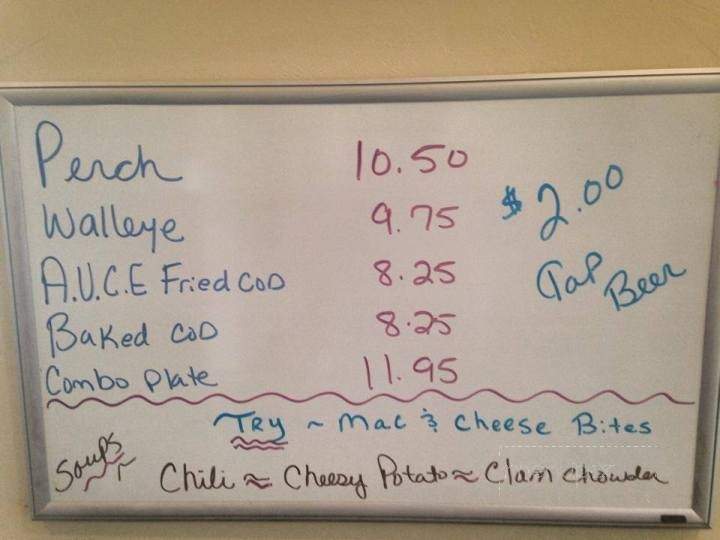 Perch 10.50
Walleye 9.75
$2.00
A.U.C.E Fried COD 8.25
Tap Beer
Baked COD 8.25
Combo Plate 11.95
Try ~ Mac & Cheese Bites
Soups
Chili ≈ Cheesy Potato ≈ Clam Chowder